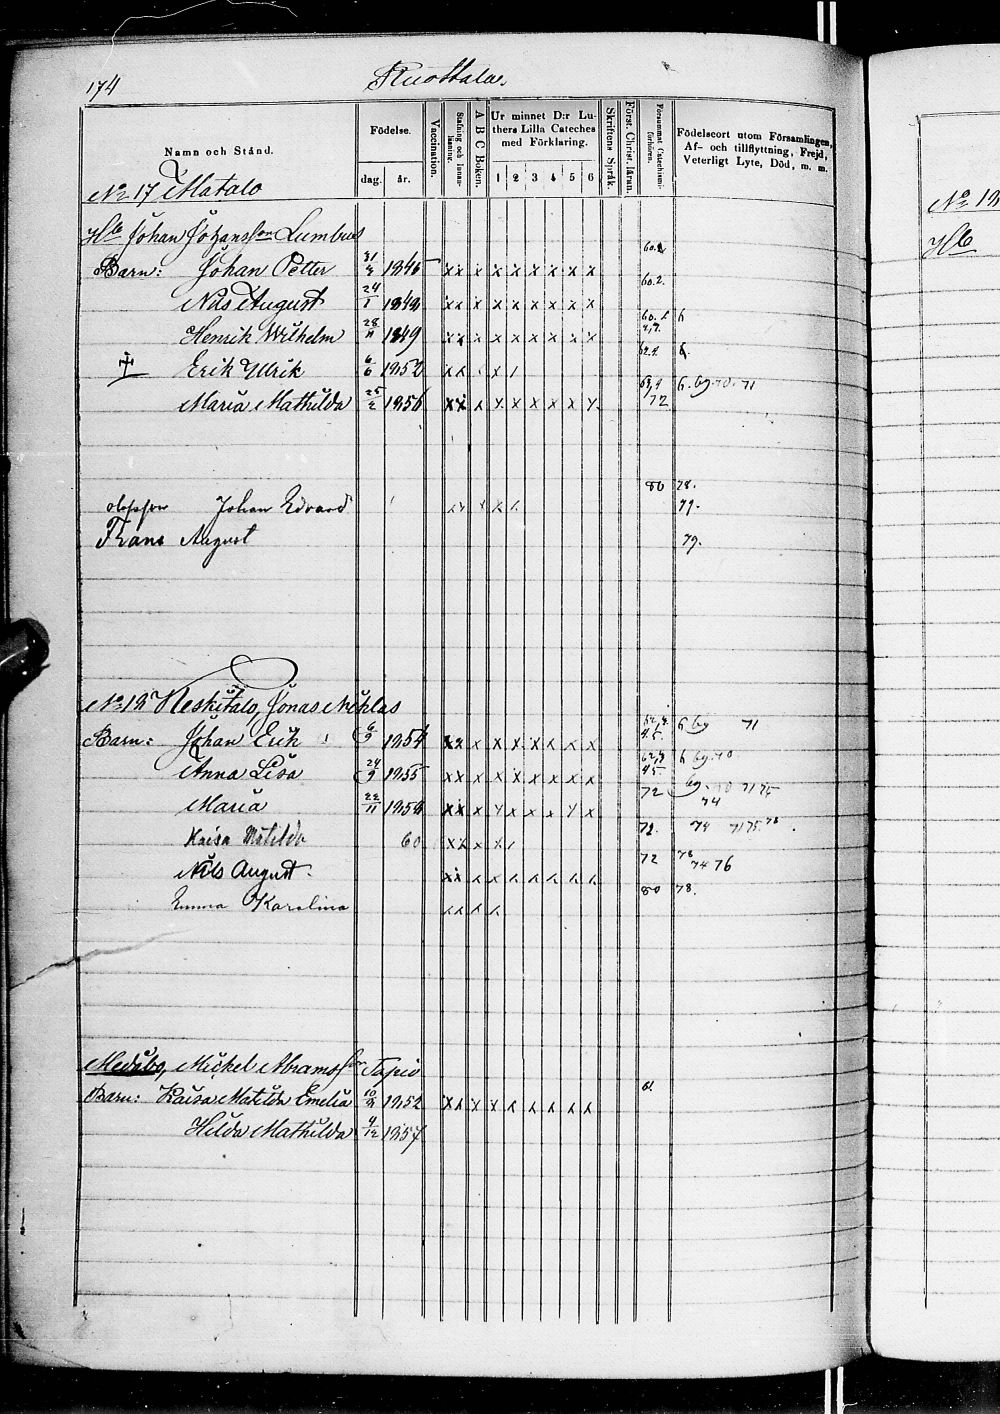 174
Ruottala.
Namn och Stånd.
Födelse.
dag. år.
Vaccination.
Stafning och Innanläsning.
A B C Boken.
Ur minnet D:r Luthers Lilla Cateches med Förklaring.
1 2 3 4 5 6
Skriftens Språk.
Först. Christ. läran.
Försummat Catechismiförhören.
Födelseort utom Församlingen, Af- och tillflyttning, Frejd, Veterligt Lyte, Död, m. m.
No 17 Matalo
Hb Johan Johansson Lumbus
Barn: Johan Petter 1846 x x x x x x x x x 60.2.
Nils August 24/1 184 x x x x x x x x x 60.2.
Henrik Wilhelm 28/11 1849 x x x x x x x x x 6
† Erik Ulrik 6/6 1852 6.
Maria Mathilda 25/2 1856 x x x x x x x x x 72 6. 69. 70. 71
Johan Edvard 80 28.
79.
Frans August 79.
No 18 Heskitalo, Jonas Niklas
Barn: Johan Erik 6/9 1854 x x x x x x x x x 6 69 71
Anna Lisa 1855 x x x x x x x x x 6 69.70
Maria 22/11 185 x x x x x x x x x 72 69. 70 71 75 74
Kaisa Matilda 60 x x x x 72. 74 71 75. 78
Nils August. x x x x x x x x x 72 78 74 76
Emma Karolina 80 78.
Medåbo, Mickel Abramsson Tapio
Barn: Kaisa Matilda Emelia 1852 x x x x x x x x x 61.
Hilda Mathilda 9/12 1857
No 18
Hb